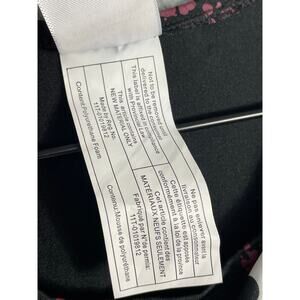 Not to be removed until
delivered to the consumer
This label is affixed in compliance
with Provincial Law
This article contains
NEW MATERIAL ONLY
Made by Reg. No.
117-01019812
Content:Polyurethane Foam
Ne pas enlever avant la
livraison au consommateur
Cette étiquette est apposée
conformément à la loi de la province
Cet article contient des
MATÉRIAUX NEUFS SEULEMENT
Fabriqué par N° de permis:
117-01019812
Contenu:Mousse de polyuréthane